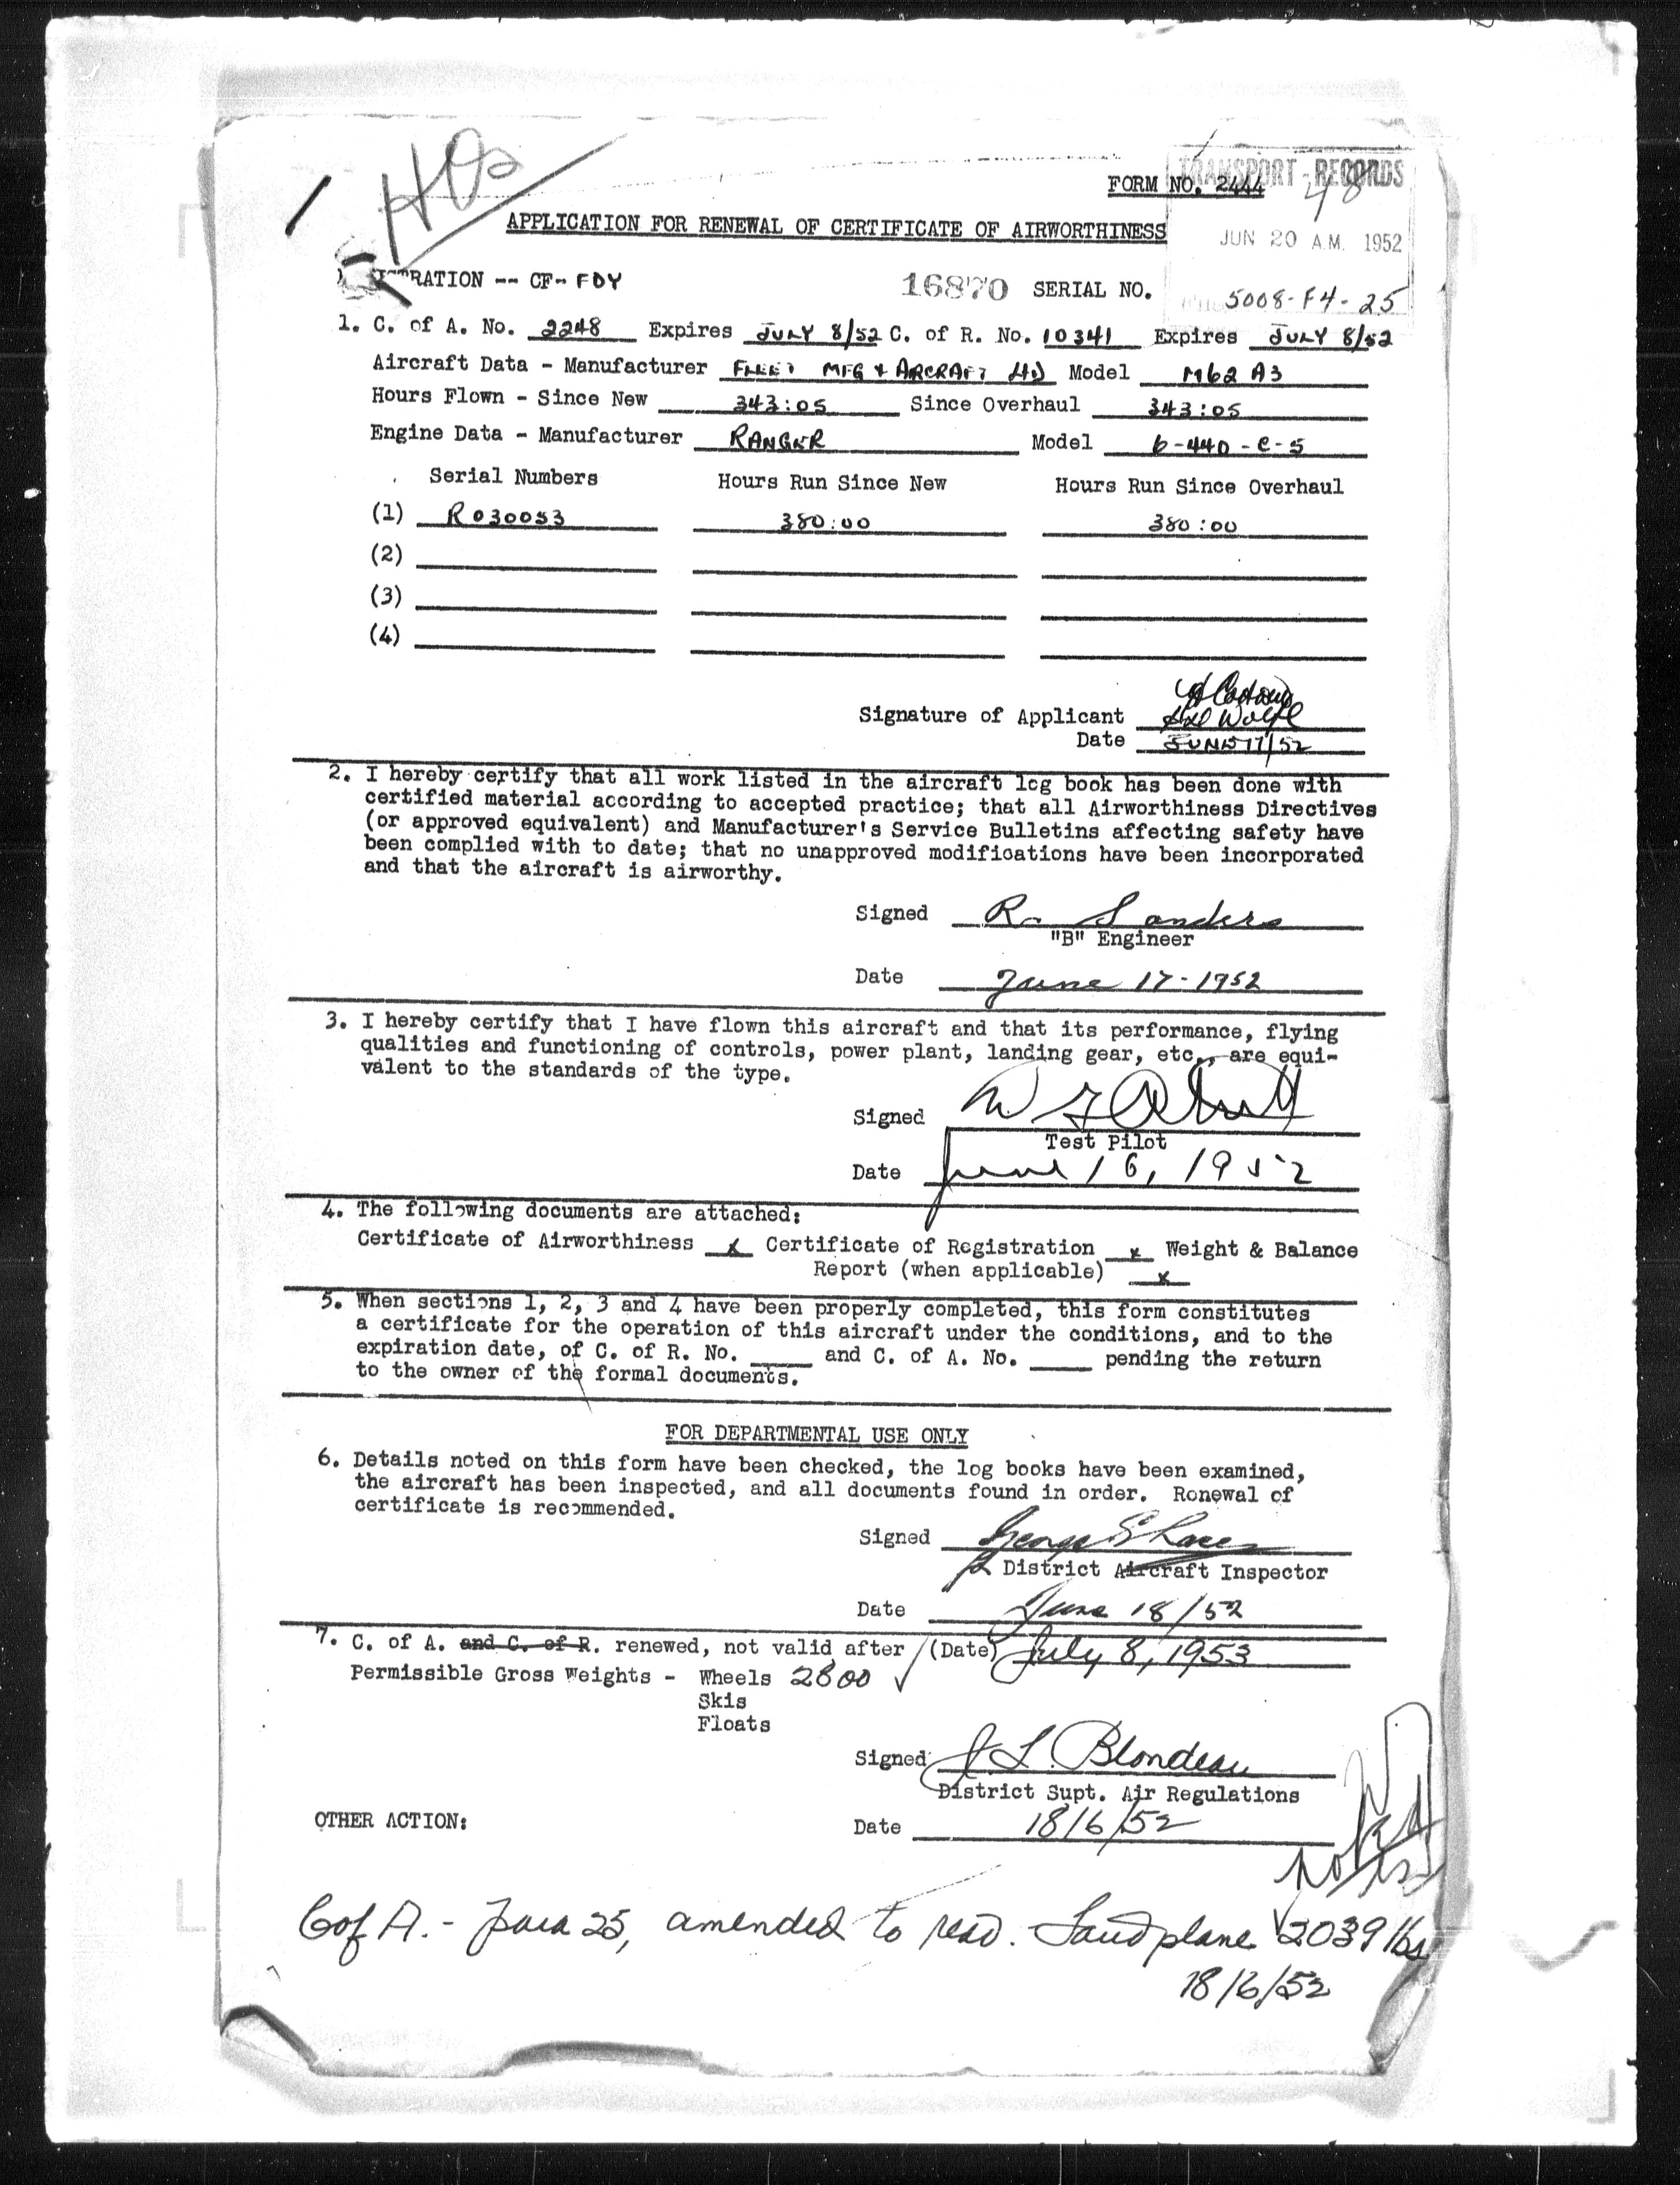 HQ
TRANSPORT - RECORDS
FORM NO. 2444
48
APPLICATION FOR RENEWAL OF CERTIFICATE OF AIRWORTHINESS
JUN 20 A.M. 1952
STRATION -- CF- FDY 16870 SERIAL NO.
5008-F4-25
1. C. of A. No. 2248 Expires JULY 8/52 C. of R. No. 10341 Expires JULY 8/52
Aircraft Data - Manufacturer FLEET MFG & ARCRAFT LTD Model M62 A3
Hours Flown - Since New 343:05 Since Overhaul 343:05
Engine Data - Manufacturer RANGER Model 6-440-C-5
Serial Numbers Hours Run Since New Hours Run Since Overhaul
(1) R030053 380:00 380:00
(2)
(3)
(4)
Signature of Applicant Wolfe
Date JUNE 17/52
2. I hereby certify that all work listed in the aircraft log book has been done with
certified material according to accepted practice; that all Airworthiness Directives
(or approved equivalent) and Manufacturer's Service Bulletins affecting safety have
been complied with to date; that no unapproved modifications have been incorporated
and that the aircraft is airworthy.
Signed R. Sanders
"B" Engineer
Date June 17-1952
3. I hereby certify that I have flown this aircraft and that its performance, flying
qualities and functioning of controls, power plant, landing gear, etc., are equi-
valent to the standards of the type.
Signed
Test Pilot
Date June 16, 1952
4. The following documents are attached:
Certificate of Airworthiness x Certificate of Registration x Weight & Balance
Report (when applicable) x
5. When sections 1, 2, 3 and 4 have been properly completed, this form constitutes
a certificate for the operation of this aircraft under the conditions, and to the
expiration date, of C. of R. No. _____ and C. of A. No. _____ pending the return
to the owner of the formal documents.
FOR DEPARTMENTAL USE ONLY
6. Details noted on this form have been checked, the log books have been examined,
the aircraft has been inspected, and all documents found in order. Renewal of
certificate is recommended.
Signed George
District Aircraft Inspector
Date June 18/52
7. C. of A. and C. of R. renewed, not valid after (Date) July 8, 1953
Permissible Gross Weights - Wheels 2800 ✓
Skis
Floats
Signed J L. Blondeau
District Supt. Air Regulations
OTHER ACTION:
Date 18/6/52
Noted
C of A. - para 25, amended to read. Landplane ✓2039 lbs
18/6/52